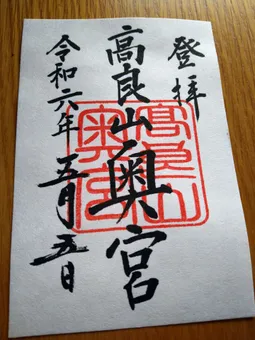 登拝
高良山奥宮
令和六年 五月五日
高良山
奥宮